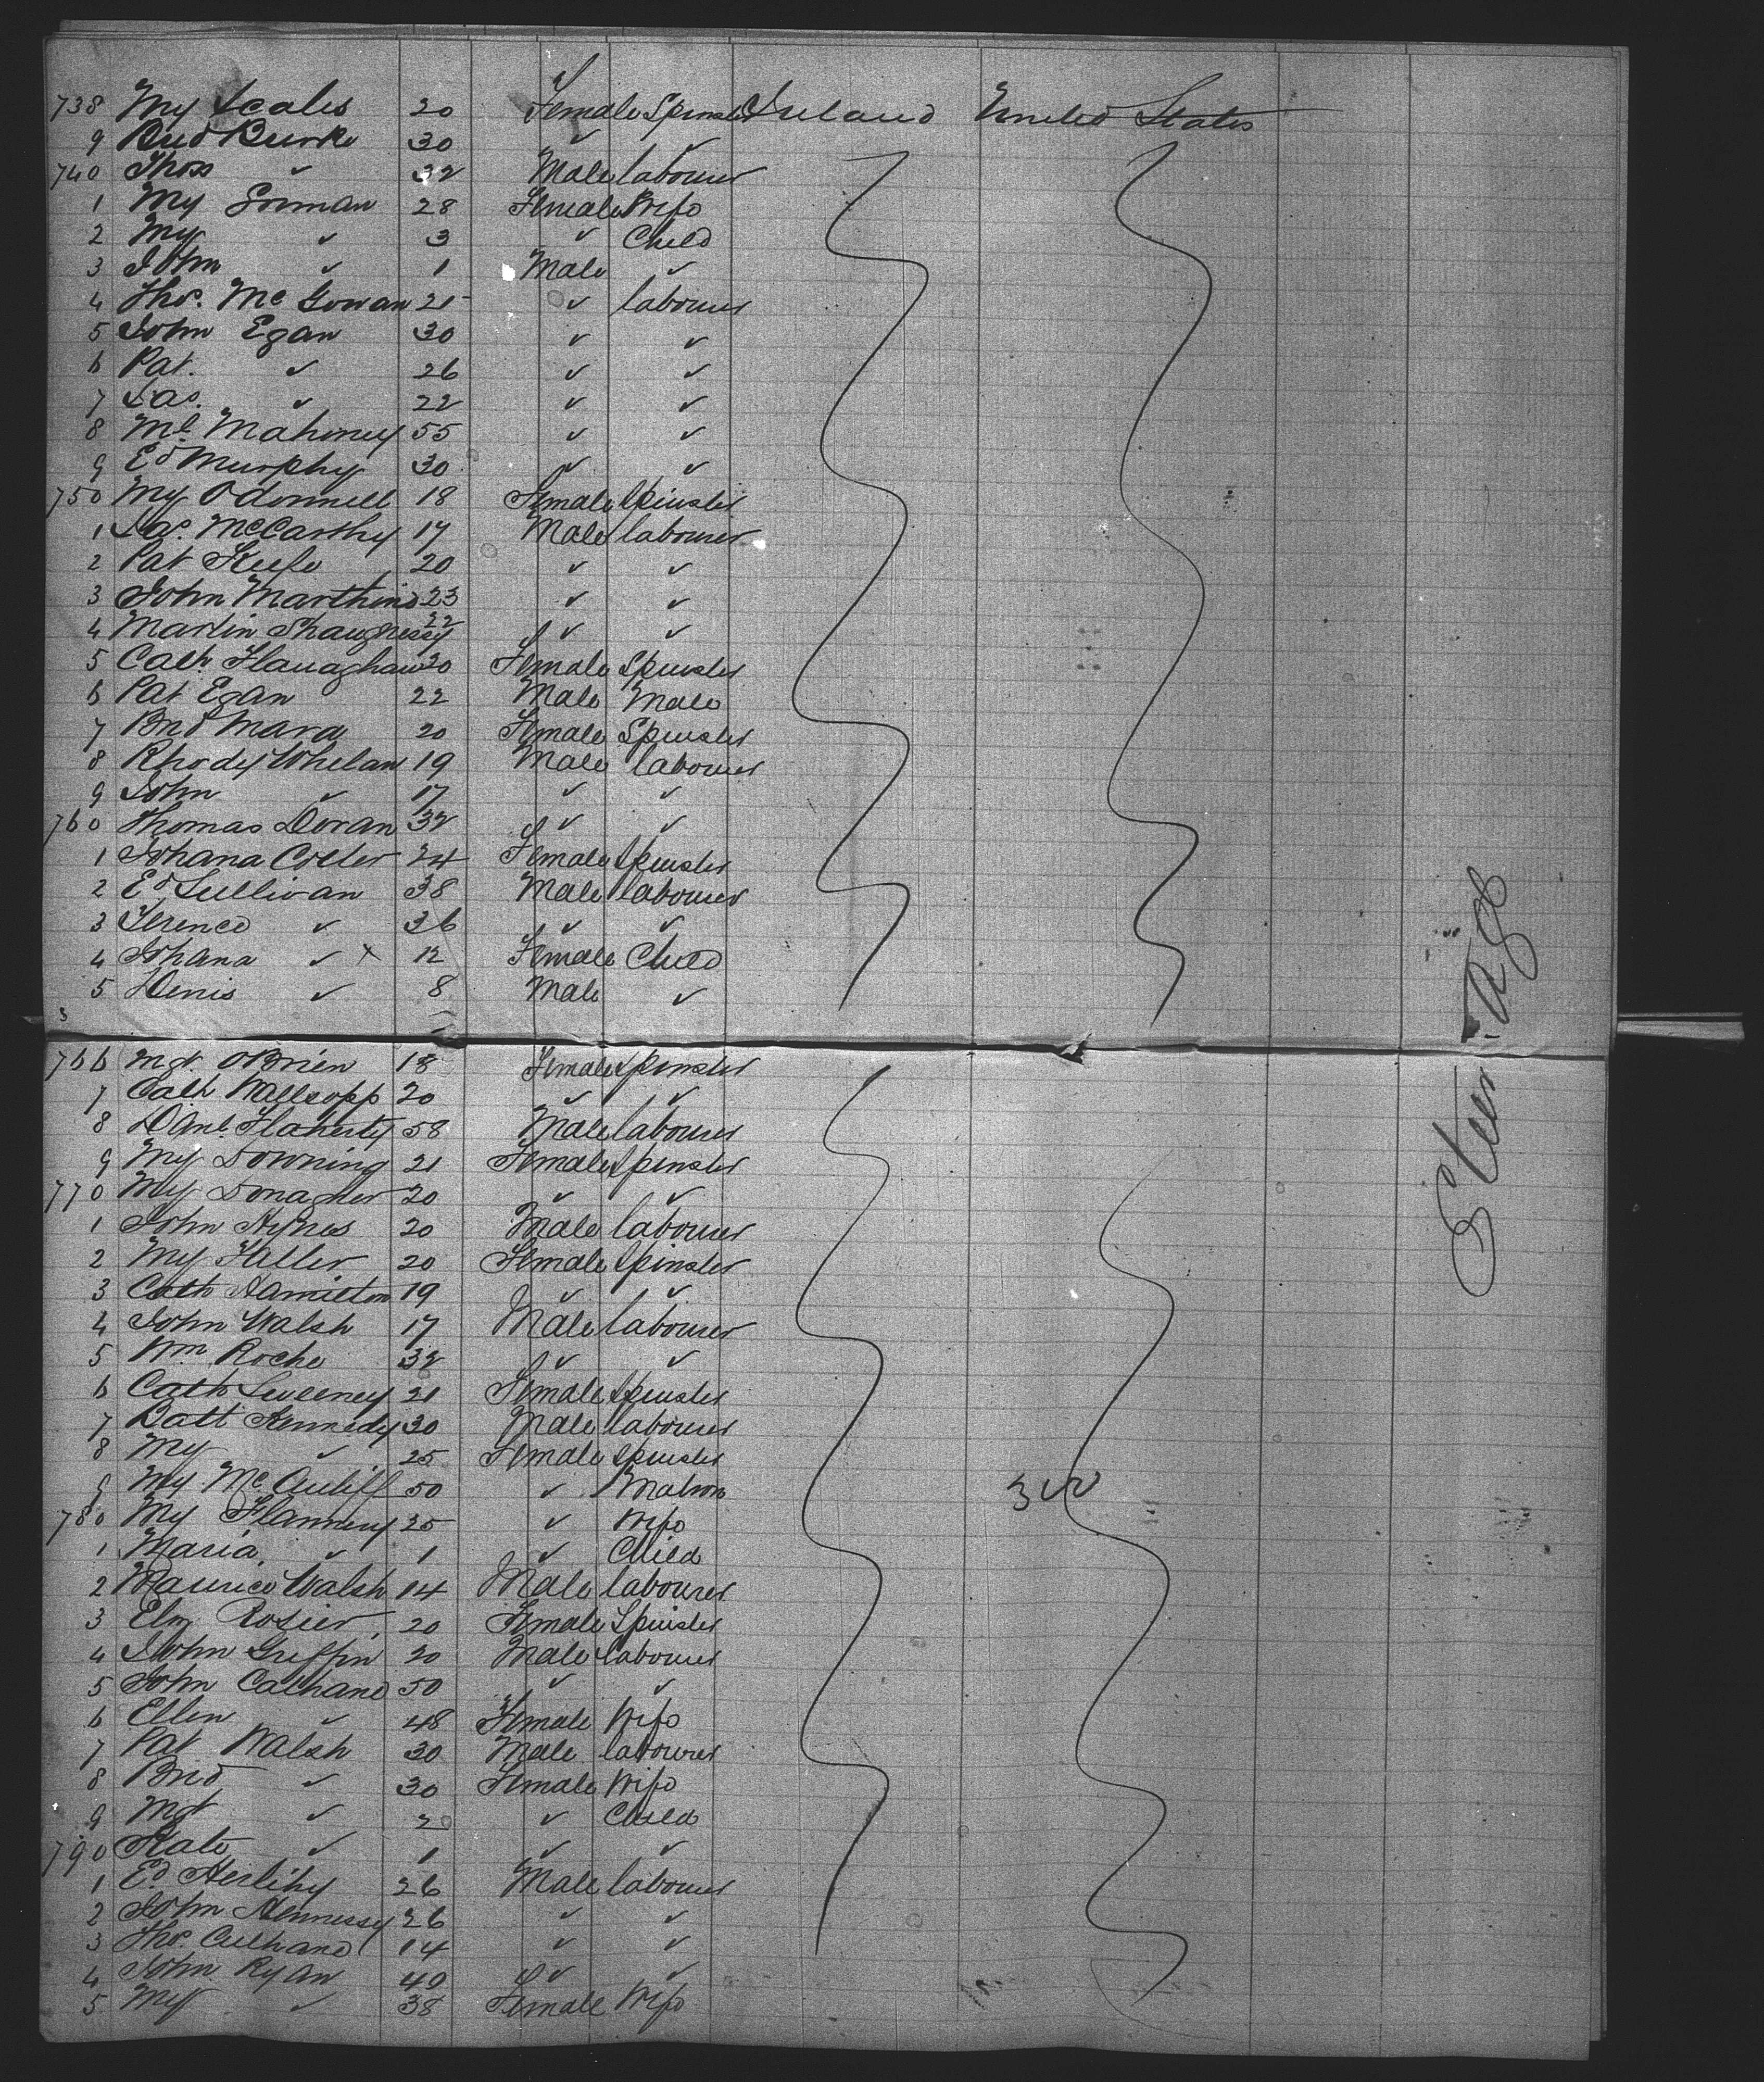 738 My Scales 20 Female Spinster Ireland United States
9 Brid Burke 30 ✓ ✓
740 Thos ✓ 32 Male labourer
1 My Gorman 28 Female Wife
2 My ✓ 3 ✓ Child
3 John ✓ 1 Male ✓
4 Thos. McGowan 25 ✓ labourer
5 John Egan 30 ✓ ✓
6 Pat. ✓ 26 ✓ ✓
7 Jas. ✓ 22 ✓ ✓
8 Ml. Mahoney 55 ✓ ✓
9 Ed Murphy 30 ✓ ✓
750 My Odonnell 18 Female Spinster
1 Jas. McCarthy 17 Male labourer
2 Pat Keefe 20 ✓ ✓
3 John 23 ✓ ✓
4 Martin Shaugnessy 22 ✓ ✓
5 Cath. Flanaghan 20 Female Spinster
6 Pat Egan 22 Male Male
7 Brid Mara 20 Female Spinster
8 Rhody Whelan 19 Male labourer
9 John ✓ 17 ✓ ✓
760 Thomas Doran 32 ✓ ✓
1 Johana 24 Female Spinster
2 Ed Sullivan 38 Male labourer
3 Terence ✓ 36 ✓ ✓
4 Johana ✓ x 12 Female Child
5 Denis ✓ 8 Male ✓
766 Mgt. OBrien 18 Female Spinster
7 Cath Wallsopp 20 ✓ ✓
8 Danl. Flaherty 58 Male labourer
9 My Downing 21 Female Spinster
770 My Donagher 20 ✓ ✓
1 John Hynes 20 Male labourer
2 My 20 Female Spinster
3 Cath Hamilton 19 ✓ ✓
4 John Walsh 17 Male labourer
5 Wm Roche 32 ✓ ✓
6 Cath Sweeney 21 Female Spinster
7 Batt Kennedy 30 Male labourer
8 My ✓ 25 Female Spinster
9 My McAuliff 50 ✓ Matron
780 My Flannery 25 ✓ Wife
1 Maria ✓ 1 ✓ Child
2 Maurice Walsh 14 Male labourer
3 Eln Rosier 20 Female Spinster
4 John Griffin 20 Male labourer
5 John Calhane 50 ✓ ✓
6 Ellen ✓ 48 Female Wife
7 Pat Walsh 30 Male labourer
8 Brid ✓ 30 Female Wife
9 Mgt ✓ 2 ✓ Child
790 Kate ✓ 1 ✓ ✓
1 Ed. Herlihy 26 Male labourer
2 John Hennessy 26 ✓ ✓
3 Thos. Culhane 14 ✓ ✓
4 John Ryan 40 ✓ ✓
5 My ✓ 38 Female Wife
Steerage